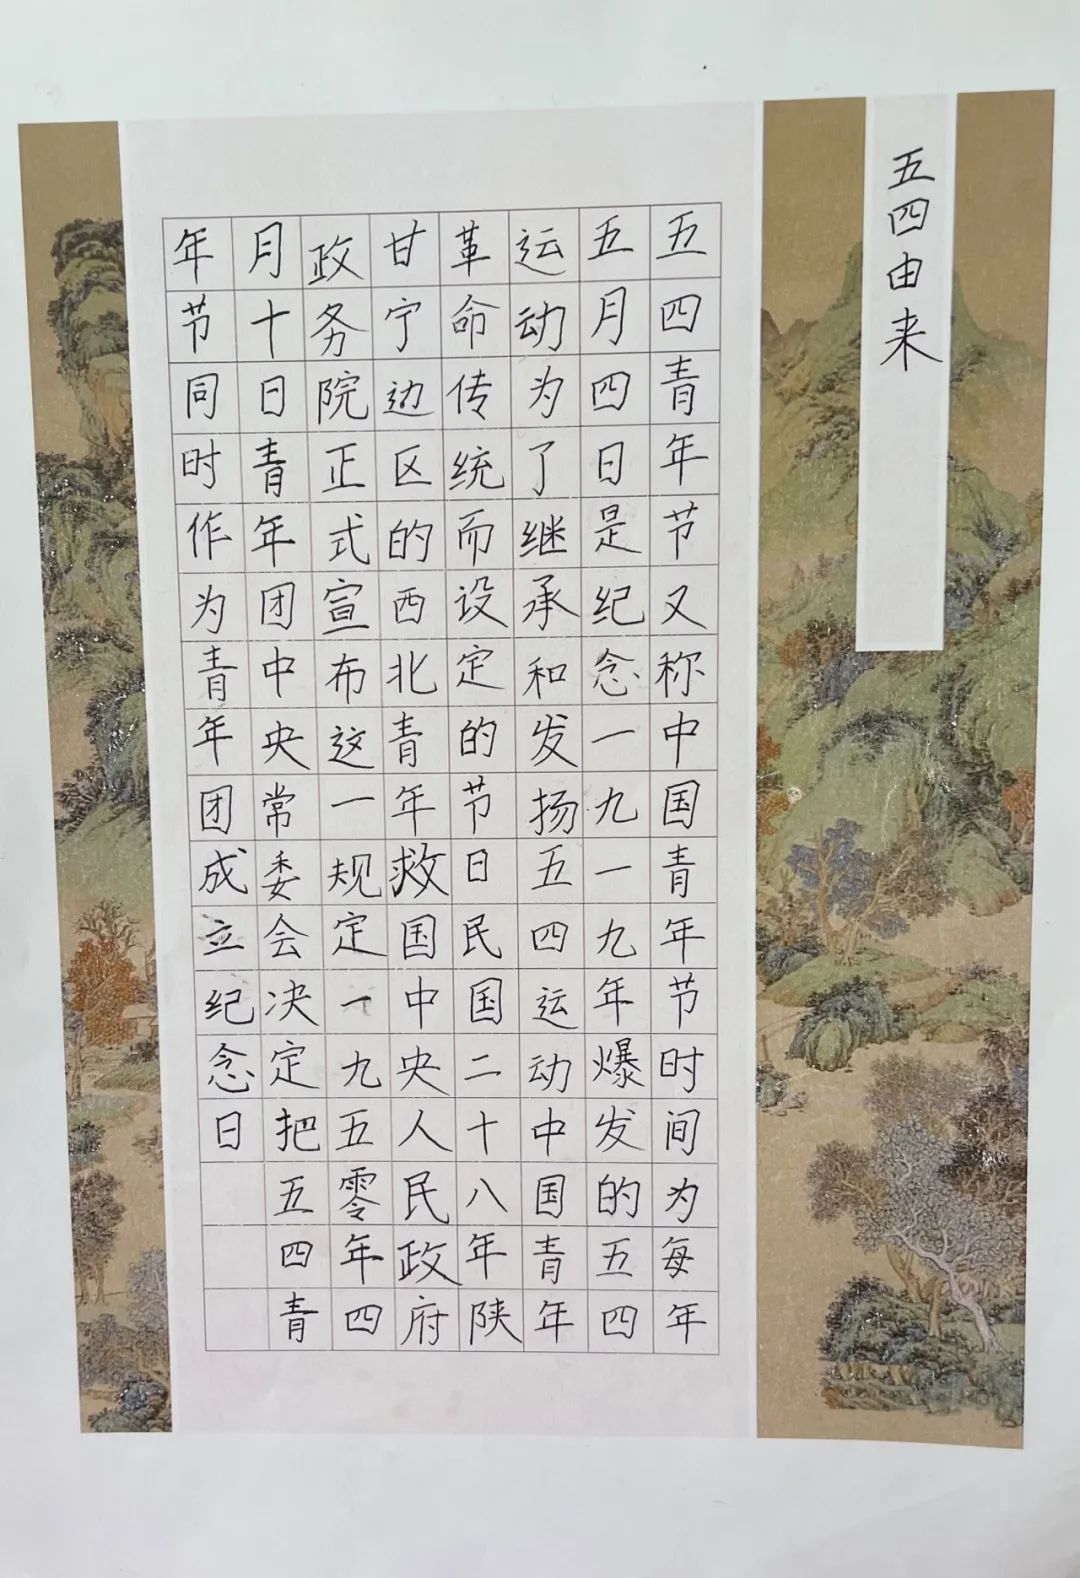 五四由来
五四青年节又称中国青年节时间为每年
五月四日是纪念一九一九年爆发的五四
运动为了继承和发扬五四运动中国青年
革命传统而设定的节日民国二十八年陕
甘宁边区的西北青年救国中央人民政府
政务院正式宣布这一规定一九五零年四
月十日青年团中央常委会决定把五四青
年节同时作为青年团成立纪念日